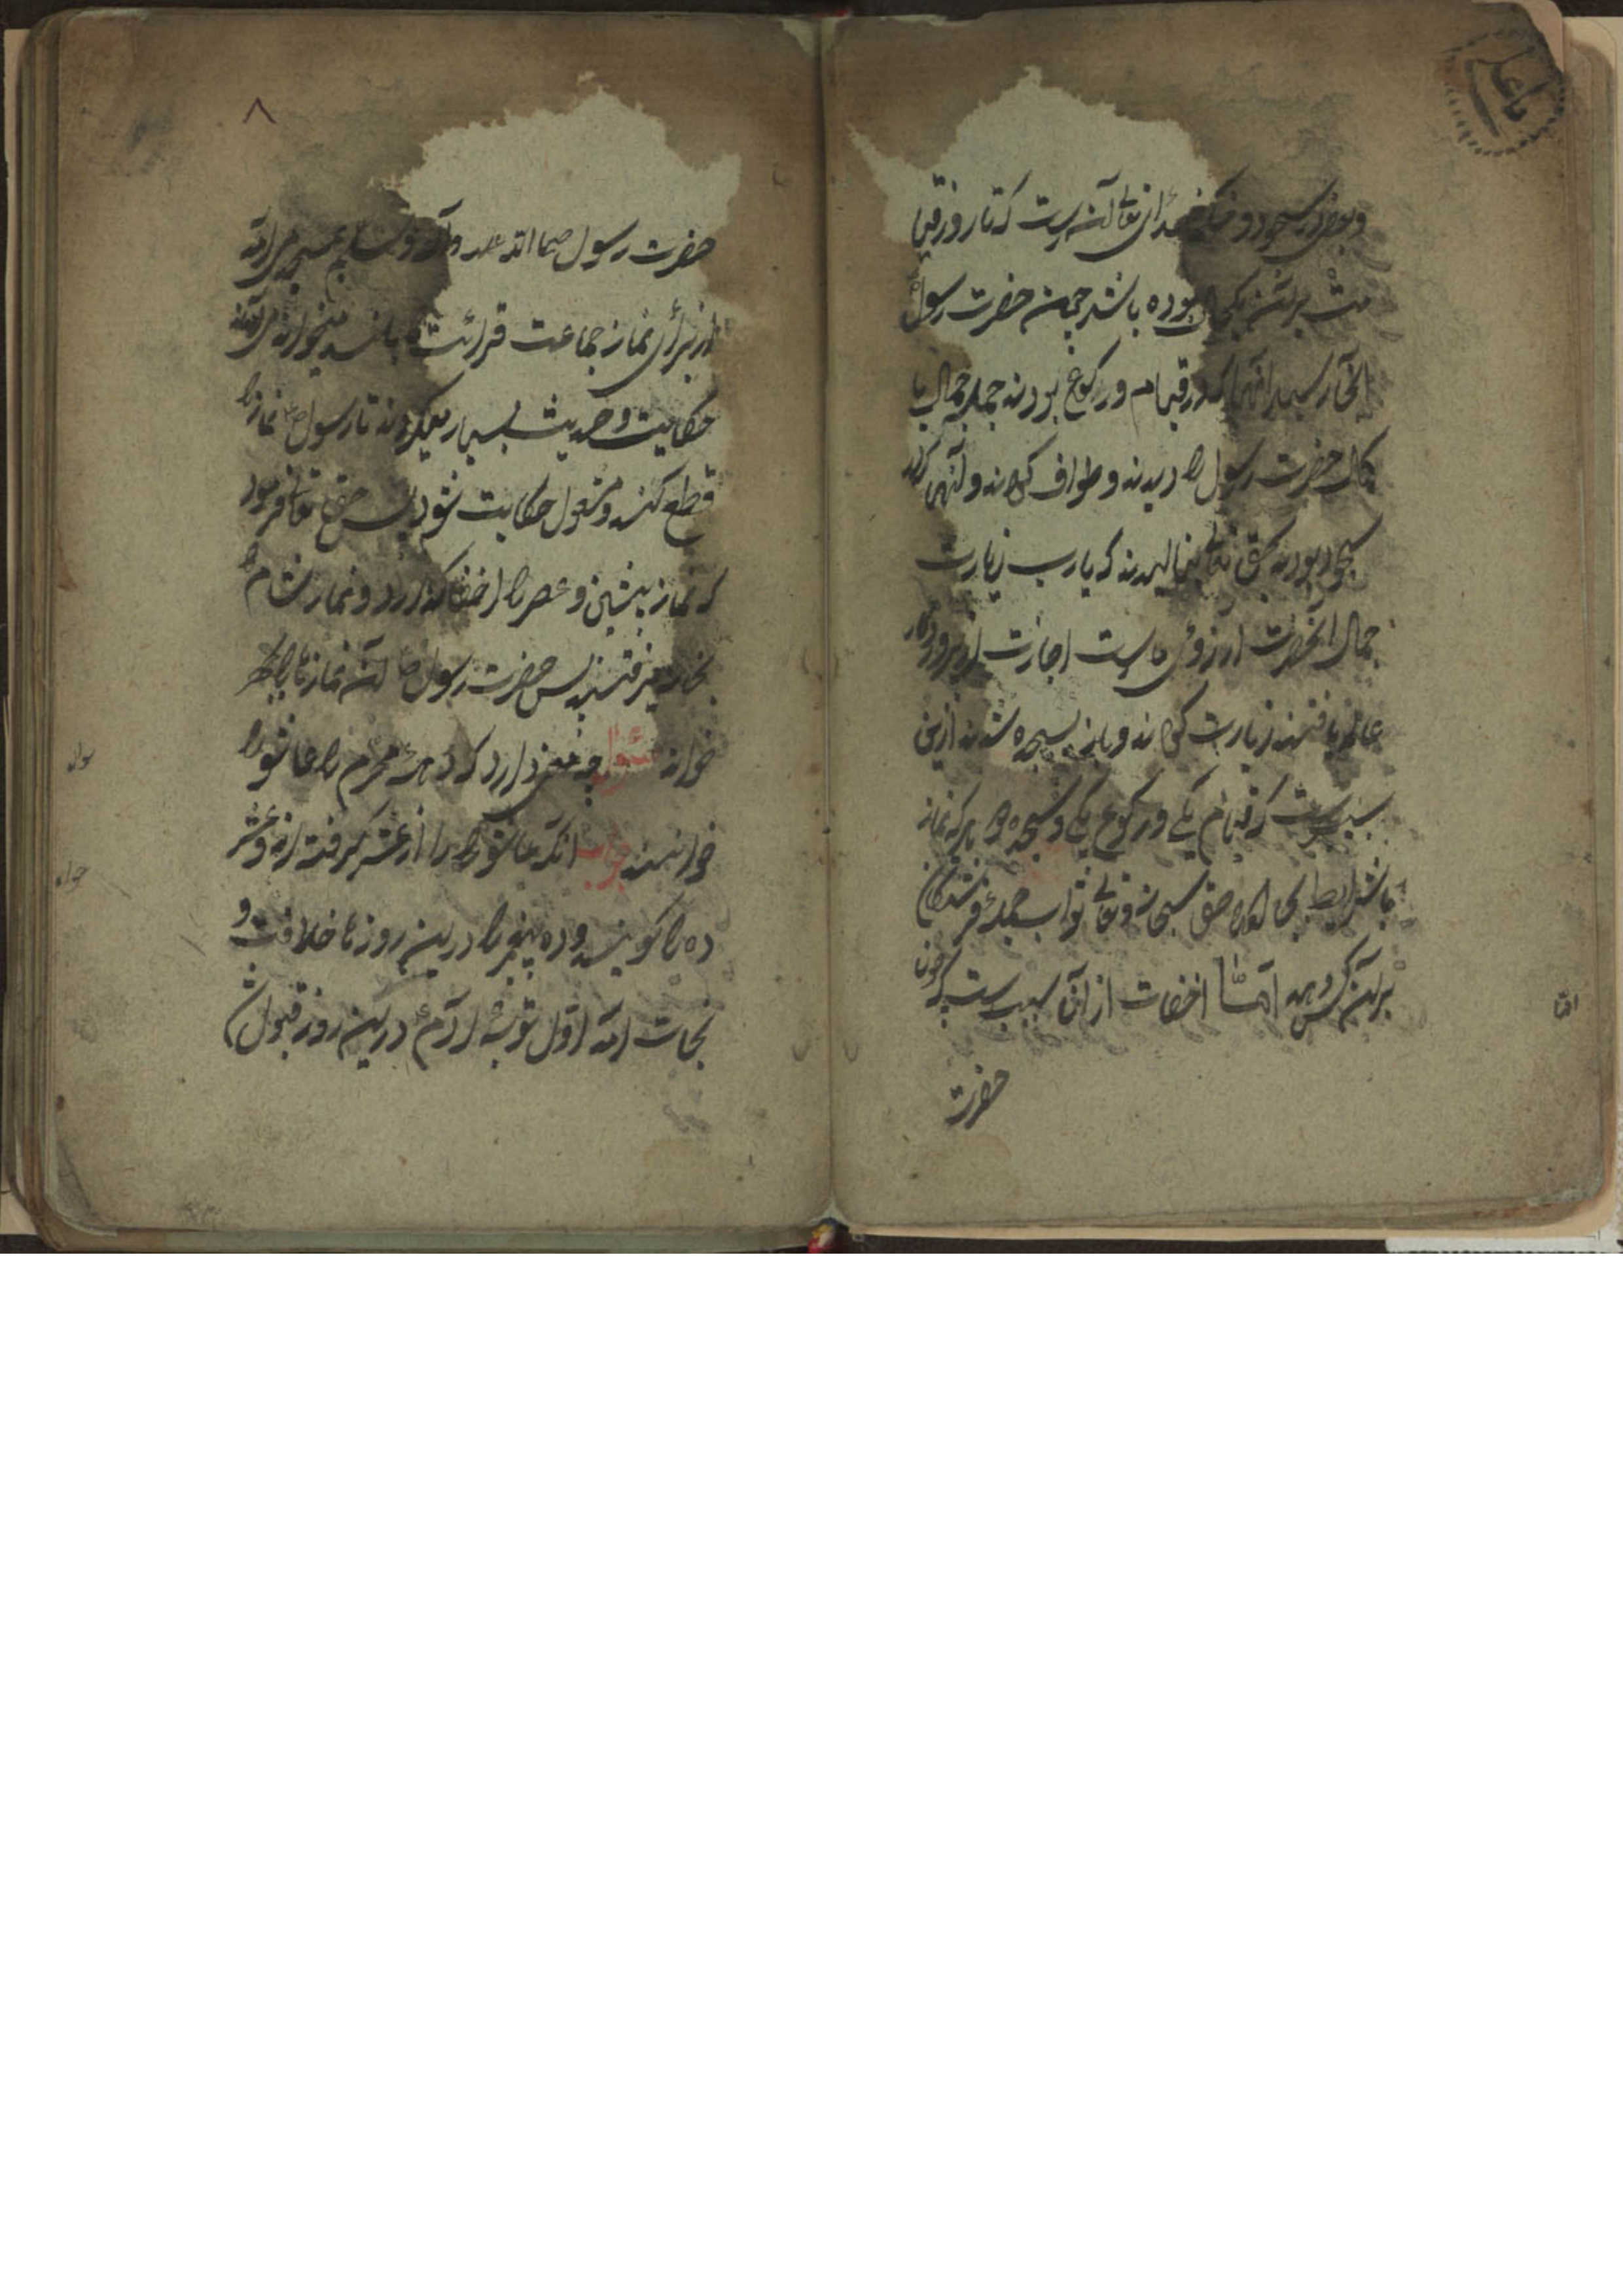 وبعضی در سجود و فرمان خدای تعالی آنست که تا روز قیا
مت برین یکحال بوده باشد چون حضرت رسول
آنجا رسید آنها که در قیام و رکوع بودند جمله جمال با
کمال حضرت رسول را دیدند و طواف کردند و آنهای که در
سجود بودند بحق تعالی بنالیدند که یارب زیارت
جمال آنحضرت آرزوی ماست اجازت از پروردگار
عالم یافتند زیارت کردند و باز بسجده شدند ازین
سبب است که قیام یکی و رکوع یکی و سجده دو هر که نماز
باشرایط بجا آورد حق سبحانه وتعالی ثواب جمله فرشتگان
برآن کس دهد اما اخفات از آن سبب است که چون
حضرت
اما
یا علی
۸
حضرت رسول صلی الله علیه وآله وسلم بمسجد می آمد
از برای نماز جماعت قرائت بلند میخواند می آمدند
حکایت و حدیث بسیار میکردند تا رسول نماز را
قطع کند و مشغول حکایت شود پس حق تعالی فرمود
که نماز پیشین و عصر را اخفا گذارند و نماز شام
بخانه میرفتند پس حضرت رسول آن نمازها را
خواند سئوال چه معنی دارد که دهه محرم را عاشورا
خوانند جواب آنکه عاشورا را از عشر گرفته اند و عشر
ده را گویند و ده پیغمبر را درین روزها خلافت و
نجات آمد اول توبه آدم درین روز قبول ش
سوال
جواب